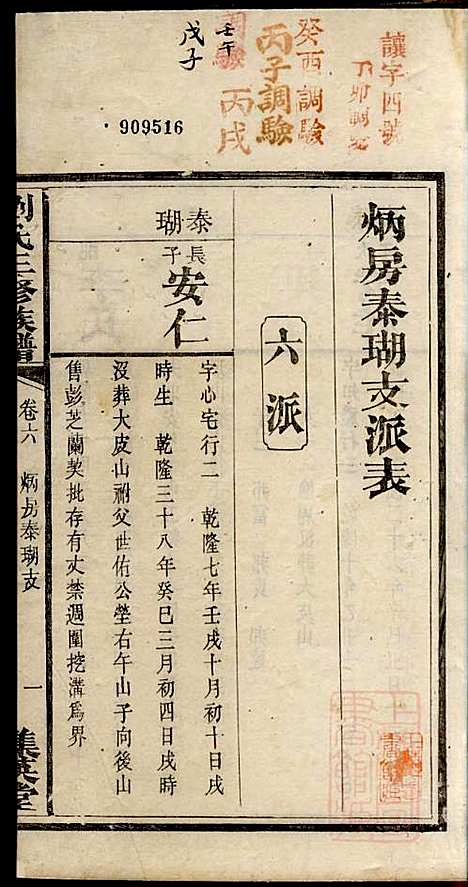 讓字四號
乃卯調驗
癸酉調驗
丙子調驗
丙戌
壬午
戊子
909516
炳房泰瑚支派表
六派
泰瑚
長子
安仁
字心宅行二 乾隆七年壬戌十月初十日戌
時生 乾隆三十八年癸巳三月初四日戌時
沒葬大皮山祔父世佑公塋右午山子向後山
售彭芝蘭契批存有丈禁週圍挖溝為界
劉氏三修族譜
卷六 炳房泰瑚支
一
集英堂